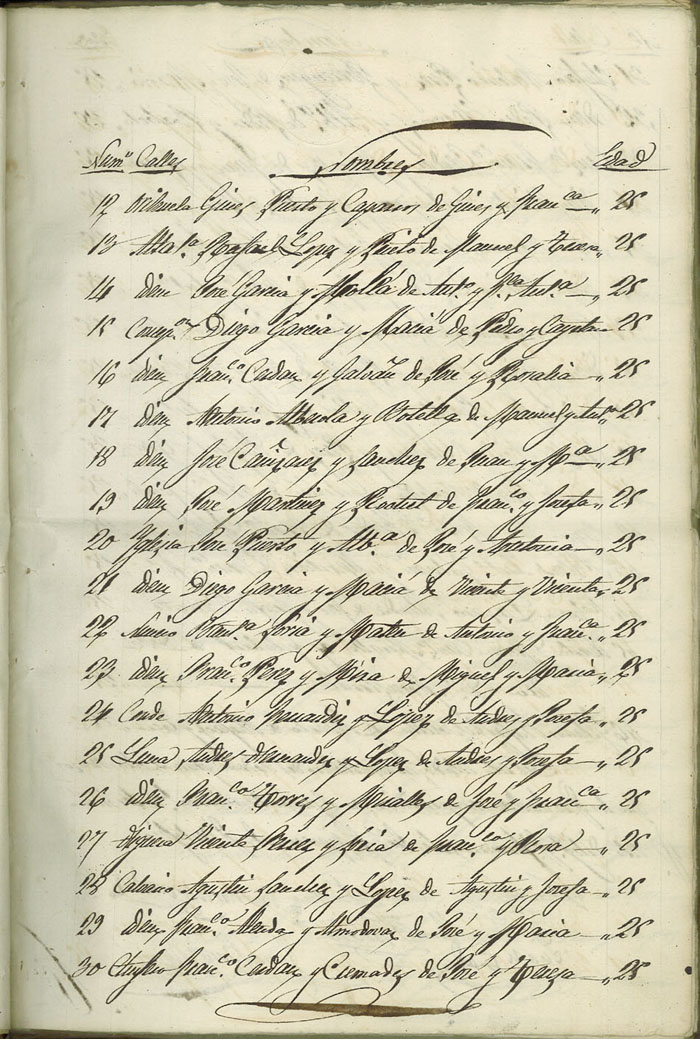 Num.º Calles Nombres Edad
12 Orihuela Gines Puerto y Caparros de Gines y Fran.ca 25
13 Alta Rafael Lopez y Prieto de Manuel y Teresa 25
14 idem José Garcia y Mollá de Ant.º y M.ª Ant.ª 25
15 Diego Garcia y Maciá de Pedro y Cayetana 25
16 idem Fran.co y Galvañ de José y Rosalia 25
17 idem Antonio y Botella de Manuel y 25
18 idem José Cañizares y Sanchez de Juan y M.ª 25
19 idem José Martinez y de Fran.co y Josefa 25
20 Yglesia José Puerto y Alb.ª de José y Antonia 25
21 idem Diego Garcia y Maciá de Vicente y Vicenta 25
22 Soria y de Antonio y Fran.ca 25
23 idem Fran.co Perez y Mira de Miguel y Maria 25
24 Conde Antonio y Lopez de Andres y Josefa 25
25 Andres Hernandez y Lopez de Andres y Josefa 25
26 idem Fran.co Torres y Miralles de José y Fran.ca 25
27 Vicente Perez y Soria de Fran.co y Rosa 25
28 Calvario Agustin Sanchez y Lopez de Agustin y Josefa 25
29 idem Fran.co y Almodovar de José y Maria 25
30 Fran.co y Cremades de José y Teresa 25